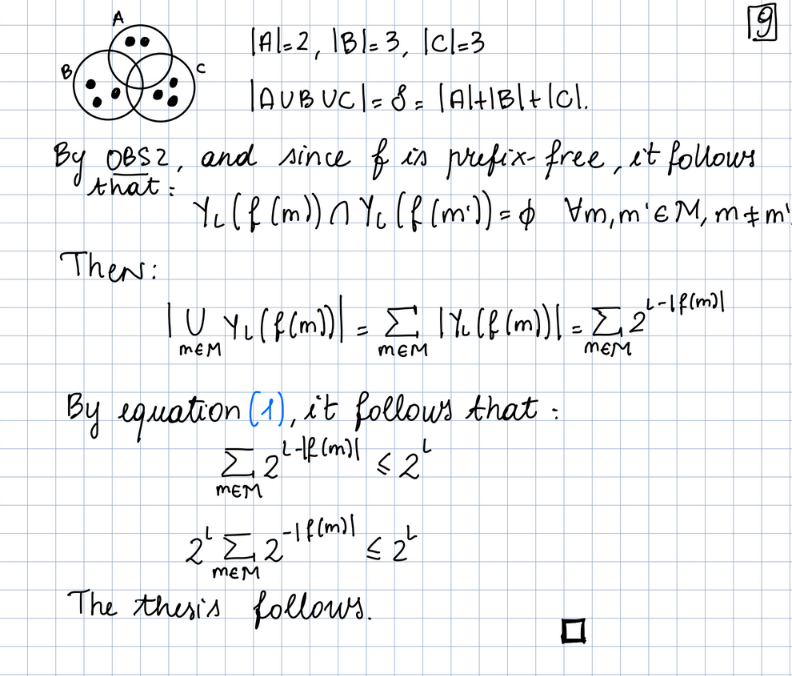 9
A
B
C
|A|=2, |B|=3, |C|=3
|A∪B∪C|=8=|A|+|B|+|C|.
By OBS2, and since f is prefix-free, it follows
that:
Y_L(f(m))∩Y_L(f(m'))=ϕ ∀m,m'∈M, m≠m'
Then:
|⋃_{m∈M} Y_L(f(m))| = ∑_{m∈M} |Y_L(f(m))| = ∑_{m∈M} 2^{L-|f(m)|}
By equation (1), it follows that:
∑_{m∈M} 2^{L-|f(m)|} ≤ 2^L
2^L ∑_{m∈M} 2^{-|f(m)|} ≤ 2^L
The thesis follows.
□